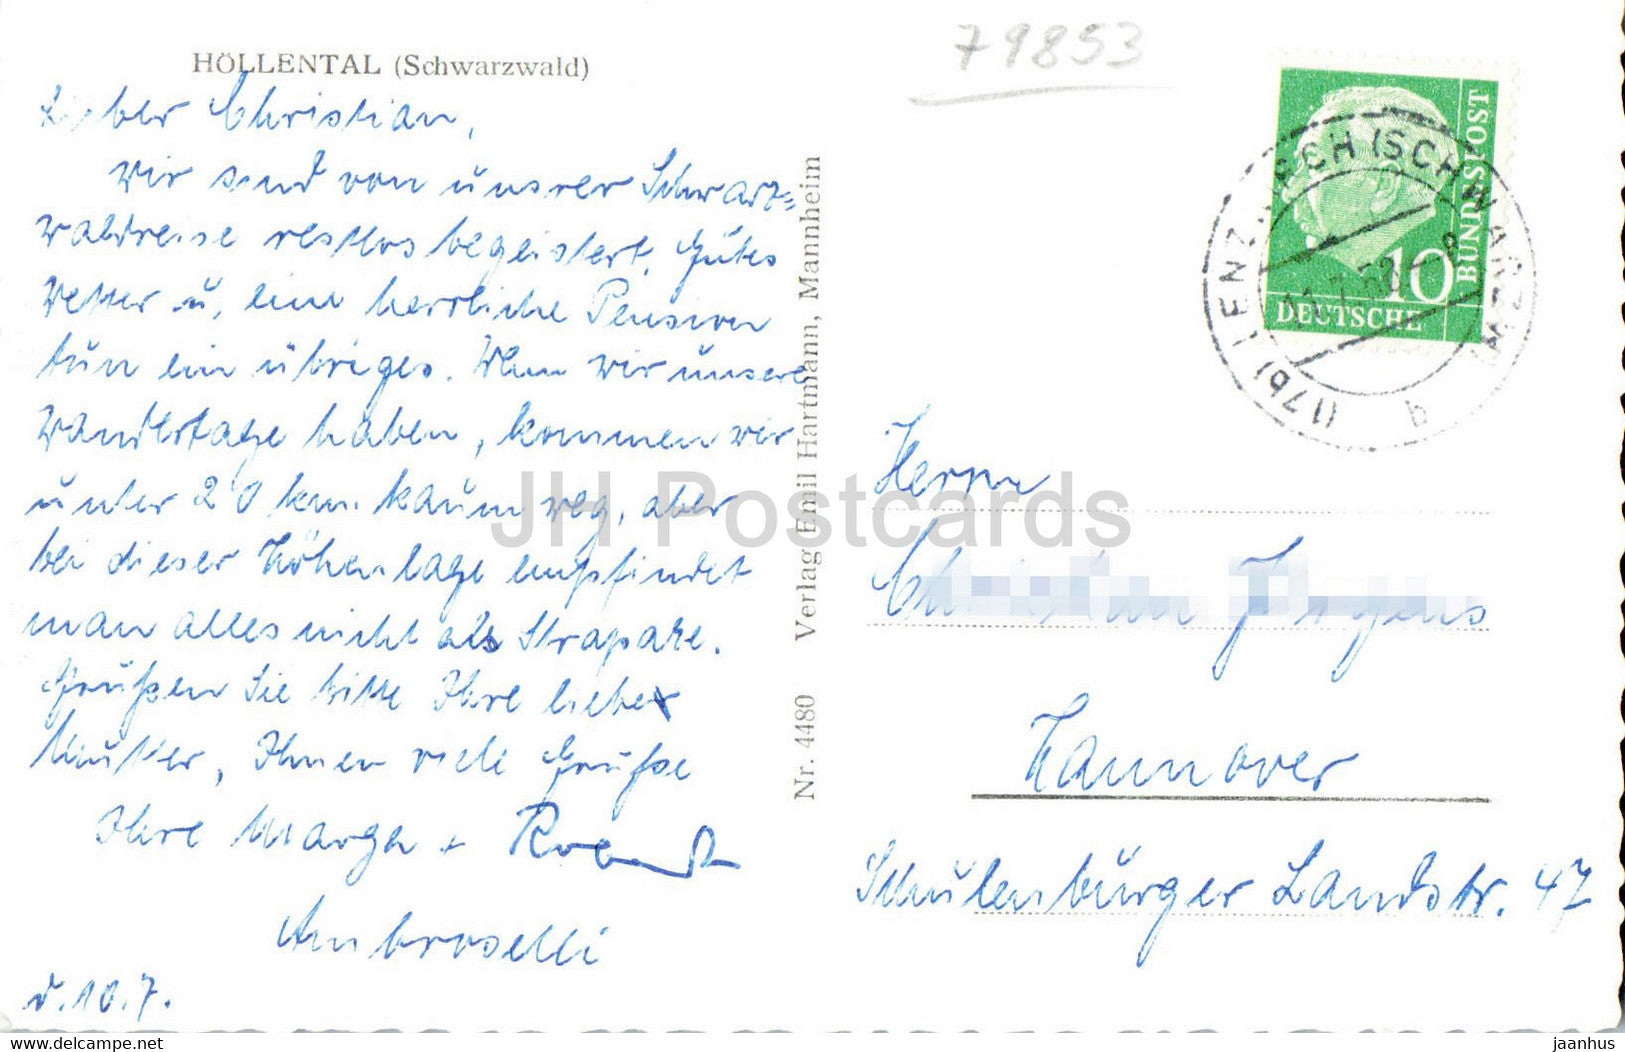 HÖLLENTAL (Schwarzwald)
79853
Lieber Christian,
wir sind von unsrer Schwarz=
waldreise restlos begeistert. Gutes
Wetter u. eine herrliche Pension
tun ein übriges. Wenn wir unsere
Wandertage haben, kommen wir
unter 20 km. kaum weg, aber
bei dieser Höhenlage empfindet
man alles nicht als Strapaze.
Grüßen Sie bitte Ihre liebe
Mutter, Ihnen viele Grüße
Ihre Marga +
Ambroselli
d. 10.7.
Nr. 4480 Verlag Emil Hartmann, Mannheim
DEUTSCHE
BUNDESPOST
10
(17b) LENZ
SCH (SCHWARZW
b
Herrn
Christian
Hannover
Schulenburger Landstr. 47
JH Postcards
delcampe.net
jaanhus